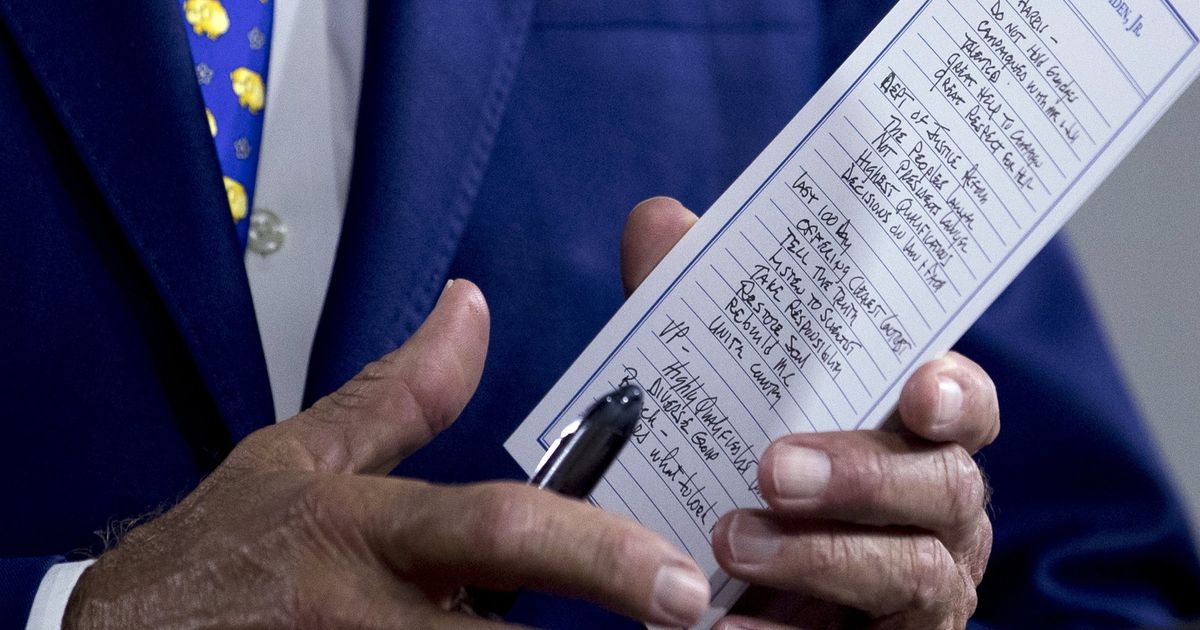 DEN, JR.
HARRIS -
DO NOT HOLD GRUDGES
CAMPAIGNED WITH ME & Jill
TALENTED
GREAT HELP TO CAMPAIGN
GREAT RESPECT FOR HER
DEPT OF JUSTICE
THE PEOPLES LAWYER
NOT PRESIDENTS LAWYER
HIGHEST QUALIFICATIONS
DECISIONS ON LAW & FACT
LAST 100 DAY
TELL THE TRUTH
LISTEN TO SCIENTIST
TAKE RESPONSIBILITY
RESTORE SOUL
REBUILD MC
UNITE COUNTRY
VP - Highly Qualified
DIVERSE GROUP
- what to look